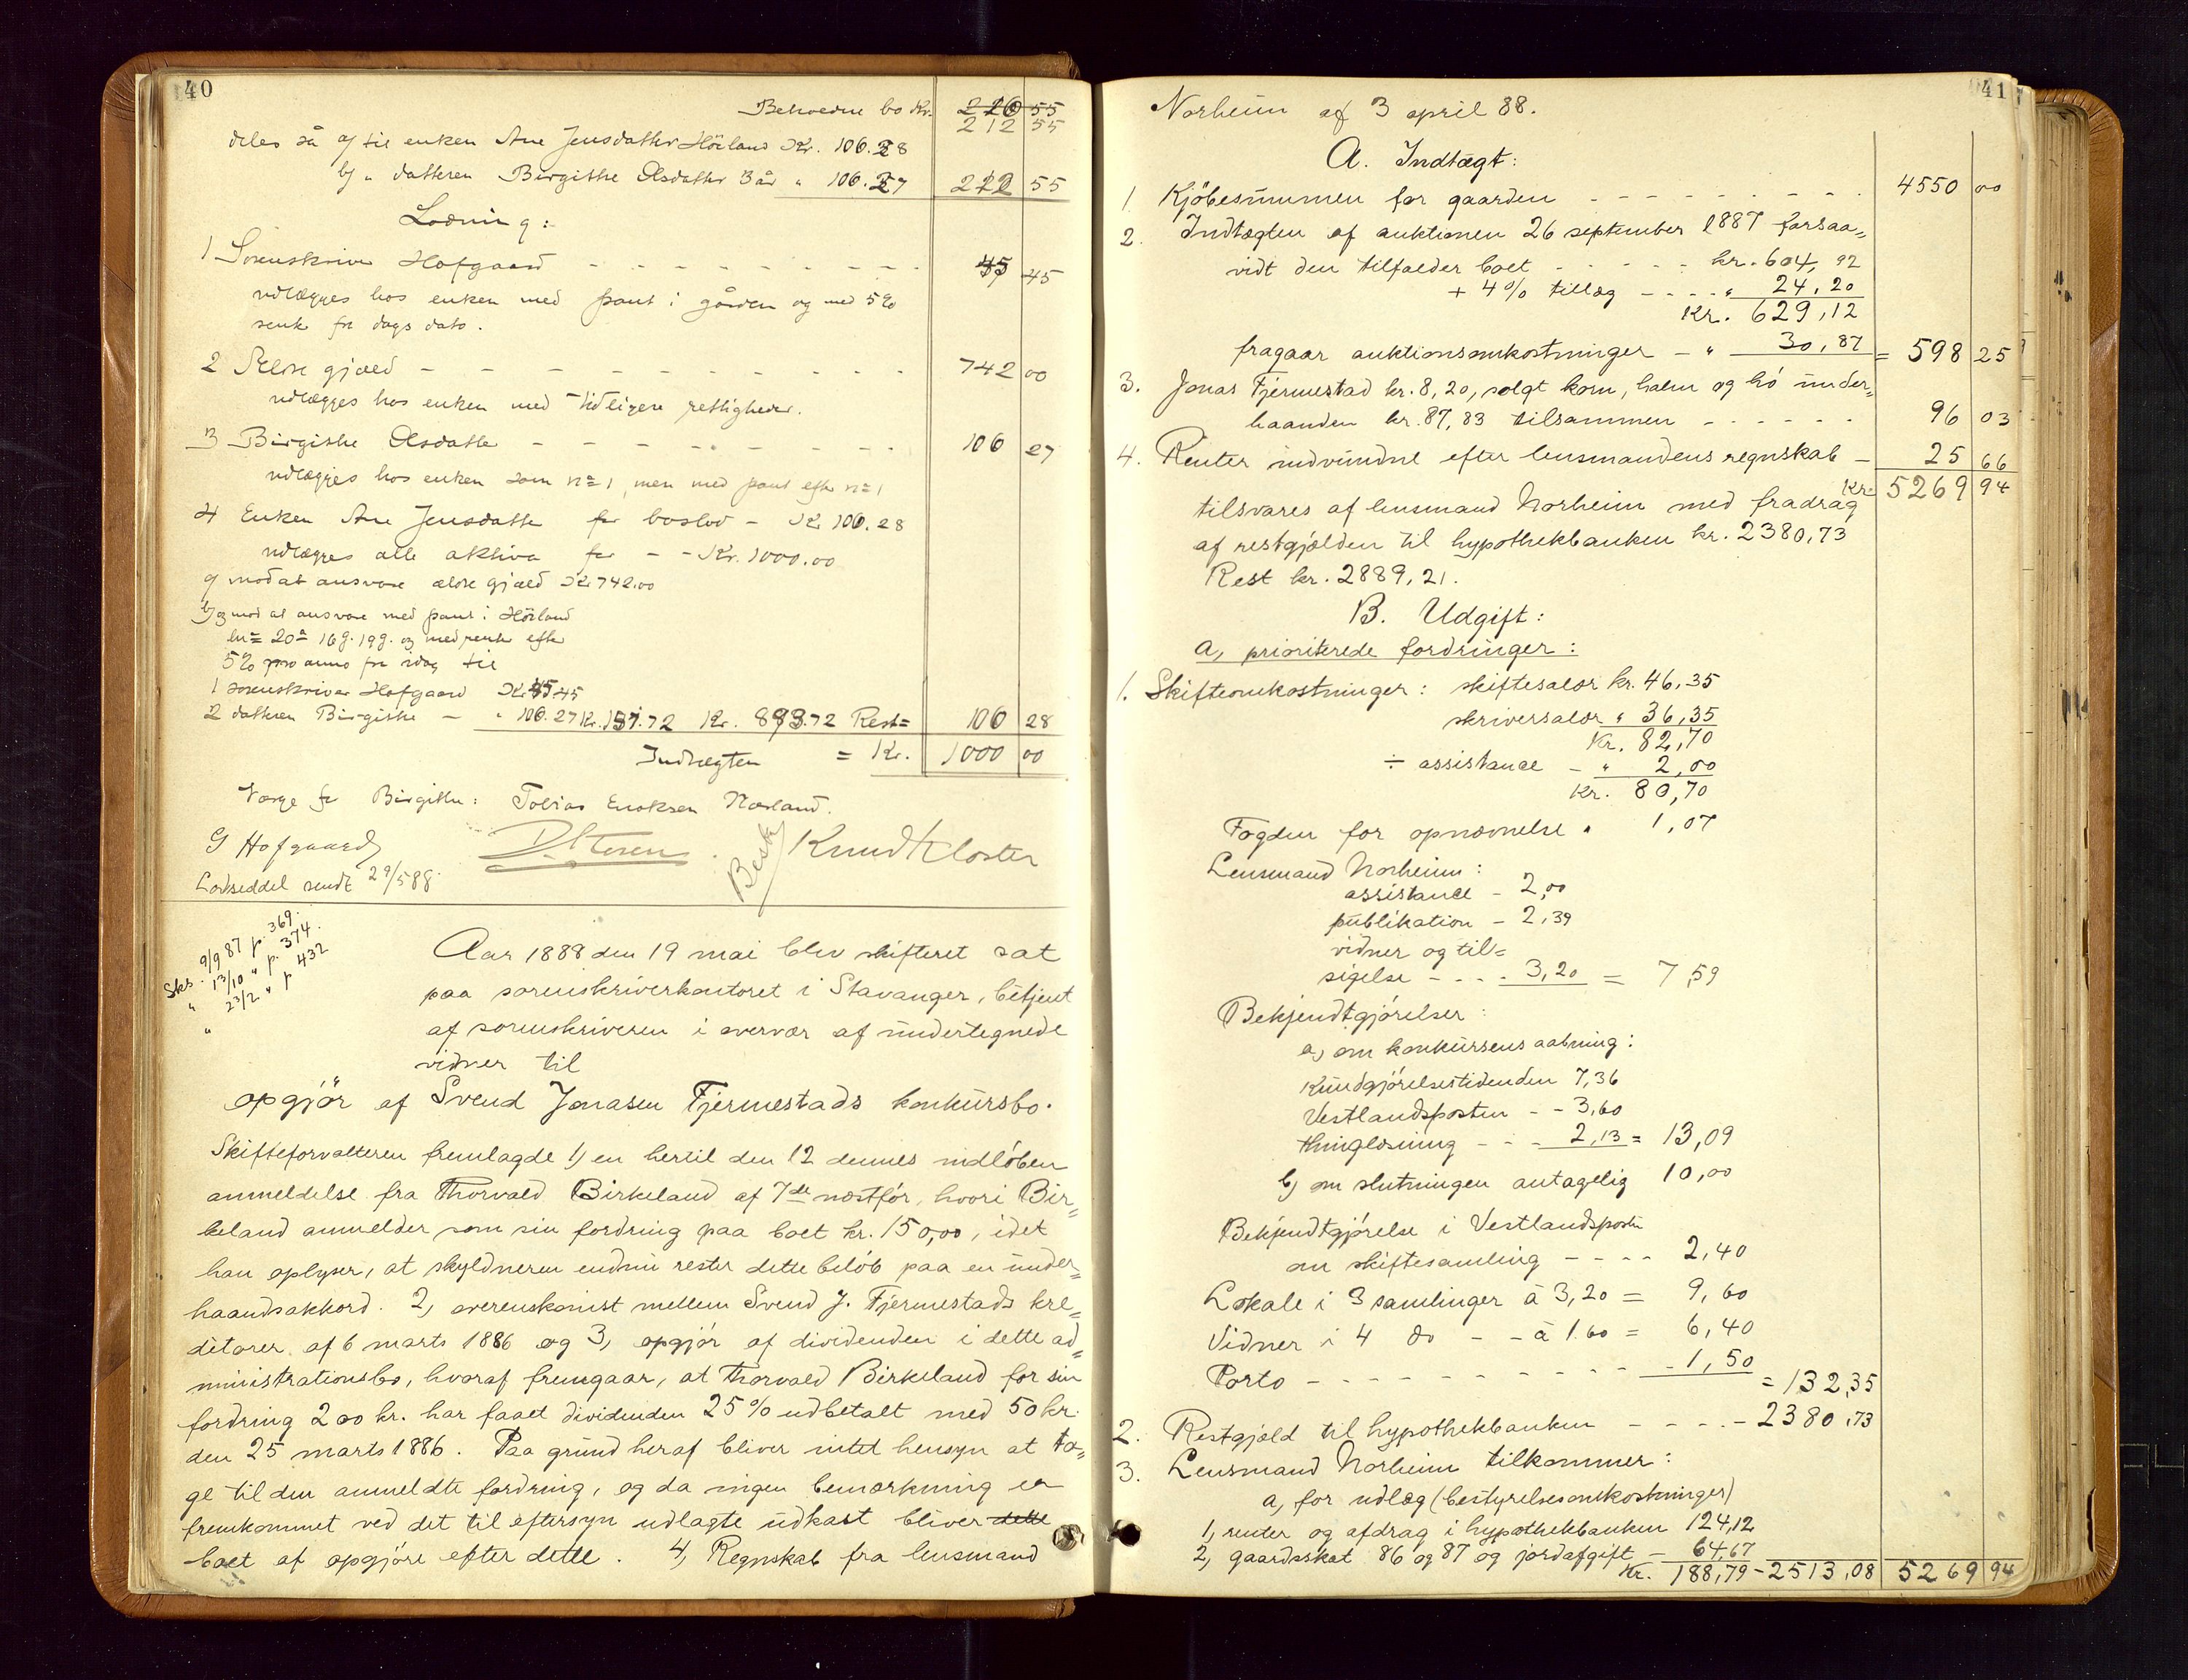 40
Beholdne bo Kr. 226 55
212 55
deles så a) til enken Ane Jensdatter Hörland Kr. 106.28
b) " datteren Birgithe Olsdatter 3 år " 106.27 212 55
Lodning:
1 Sorenskriver Hofgaard - - - - - - - - 45 45
udlægges hos enken med pant i gården og med 5%
rente fra dags dato.
2 Ældre gjæld - - - - - - - - - 742 00
udlægges hos enken med tidligere rettigheder.
3 Birgithe Olsdatter - - - - - - - - 106 27
udlægges hos enken som no 1, men med pant efter no 1
4 Enken Ane Jensdatter for boslod - Kr. 106.28
udlægges alle aktiva for - - Kr. 1000.00
a) mod at ansvare ældre gjæld Kr 742.00
b) og mod at ansvare med pant i Hörland
lno 20a 16g. 19g. og med rente efter
5% pro anno fra idag til
1 sorenskriver Hofgaard Kr 45.45
2 datteren Birgithe - " 106.27 Kr. 151.72 Kr. 893.72 Rest = 106 28
Indtægten = Kr. 1000 00
Værge for Birgithe: Tobias Enoksen Nærland.
G Hofgaard D. Steren. Besk. Knud Kloster
Lodseddel sendt 29/5 88.
Sks. 9/9 87 p. 369.
" 13/10 " p. 374.
" 23/2 " p 432
Aar 1888 den 19 mai blev skifteret sat
paa sorenskriverkontoret i Stavanger, betjent
af sorenskriveren i overvær af undertegnede
vidner til
opgjör af Svend Jonasen Fjermestads konkursbo.
Skifteforvalteren fremlagde 1) en hertil den 12 dennes indlöben
anmeldelse fra Thorvald Birkeland af 7de næstför, hvori Bir=
keland anmelder som sin fordring paa boet kr. 150,00, idet
han oplyser, at skyldneren endnu rester dette belöb paa en under=
haandsakkord. 2, overenskomst mellem Svend J. Fjermestads kre=
ditorer af 6 marts 1886 og 3, opgjör af dividenden i dette ad=
ministrationsbo, hvoraf fremgaar, at Thorvald Birkeland for sin
fordring 200 kr. har faaet dividenden 25% udbetalt med 50 kr.
den 25 marts 1886. Paa grund heraf bliver intet hensyn at ta=
ge til den anmeldte fordring, og da ingen bemærkning er
fremkommet ved det til eftersyn udlagte udkast bliver dette
boet af opgjöre efter dette. 4, Regnskab fra lensmand
41
Norheim af 3 april 88.
A. Indtægt:
1. Kjöbesummen for gaarden - - - - - - - - - 4550 00
2. Indtægten af auktionen 26 september 1887 forsaa=
vidt den tilfalder boet - - - - - kr. 604,92
+ 4% tillæg - - - - " 24,20
Kr. 629,12
fragaar auktionsomkostninger - " 30,87 = 598 25
3. Jonas Fjermestad kr. 8,20, solgt korn, halm og hö under=
haanden kr. 87,83 tilsammen - - - - - - 96 03
4. Renter indvundne efter lensmandens regnskab - 25 66
Kr. 5269 94
tilsvares af lensmand Norheim med fradrag
af restgjælden til hypothekbanken kr. 2380,73
Rest kr. 2889,21.
B. Udgift:
a, prioriterede fordringer:
1. Skifteomkostninger: skiftesalær kr. 46,35
skriversalær " 36,35
Kr. 82,70
÷ assistance - " 2,00
Kr. 80,70
Fogden for opnævnelse " 1,07
Lensmand Norheim:
assistance - 2,00
publikation - 2,39
vidner og til=
sigelse - - - - 3,20 = 7,59
Bekjendtgjörelser:
a, om konkursens aabning:
Kundgjörelsestidenden 7,36
Vestlandsposten - - 3,60
thinglæsning - - - 2,13 = 13,09
b) om slutningen antagelig 10,00
Bekjendtgjörelse i Vestlandsposten
om skiftesamling - - - - 2,40
Lokale i 3 samlinger à 3,20 = 9,60
Vidner i 4 do - - à 1.60 = 6,40
Porto - - - - - - - - - - 1,50 = 132,35
2. Restgjæld til hypothekbanken - - - - - 2380,73
3. Lensmand Norheim tilkommer:
a, for udlæg (bestyrelsesomkostninger)
1, renter og afdrag i hypothekbanken 124,12
2, gaardsskat 86 og 87 og jordafgift - 64,67
Kr. 188,79 - 2513,08 5269 94